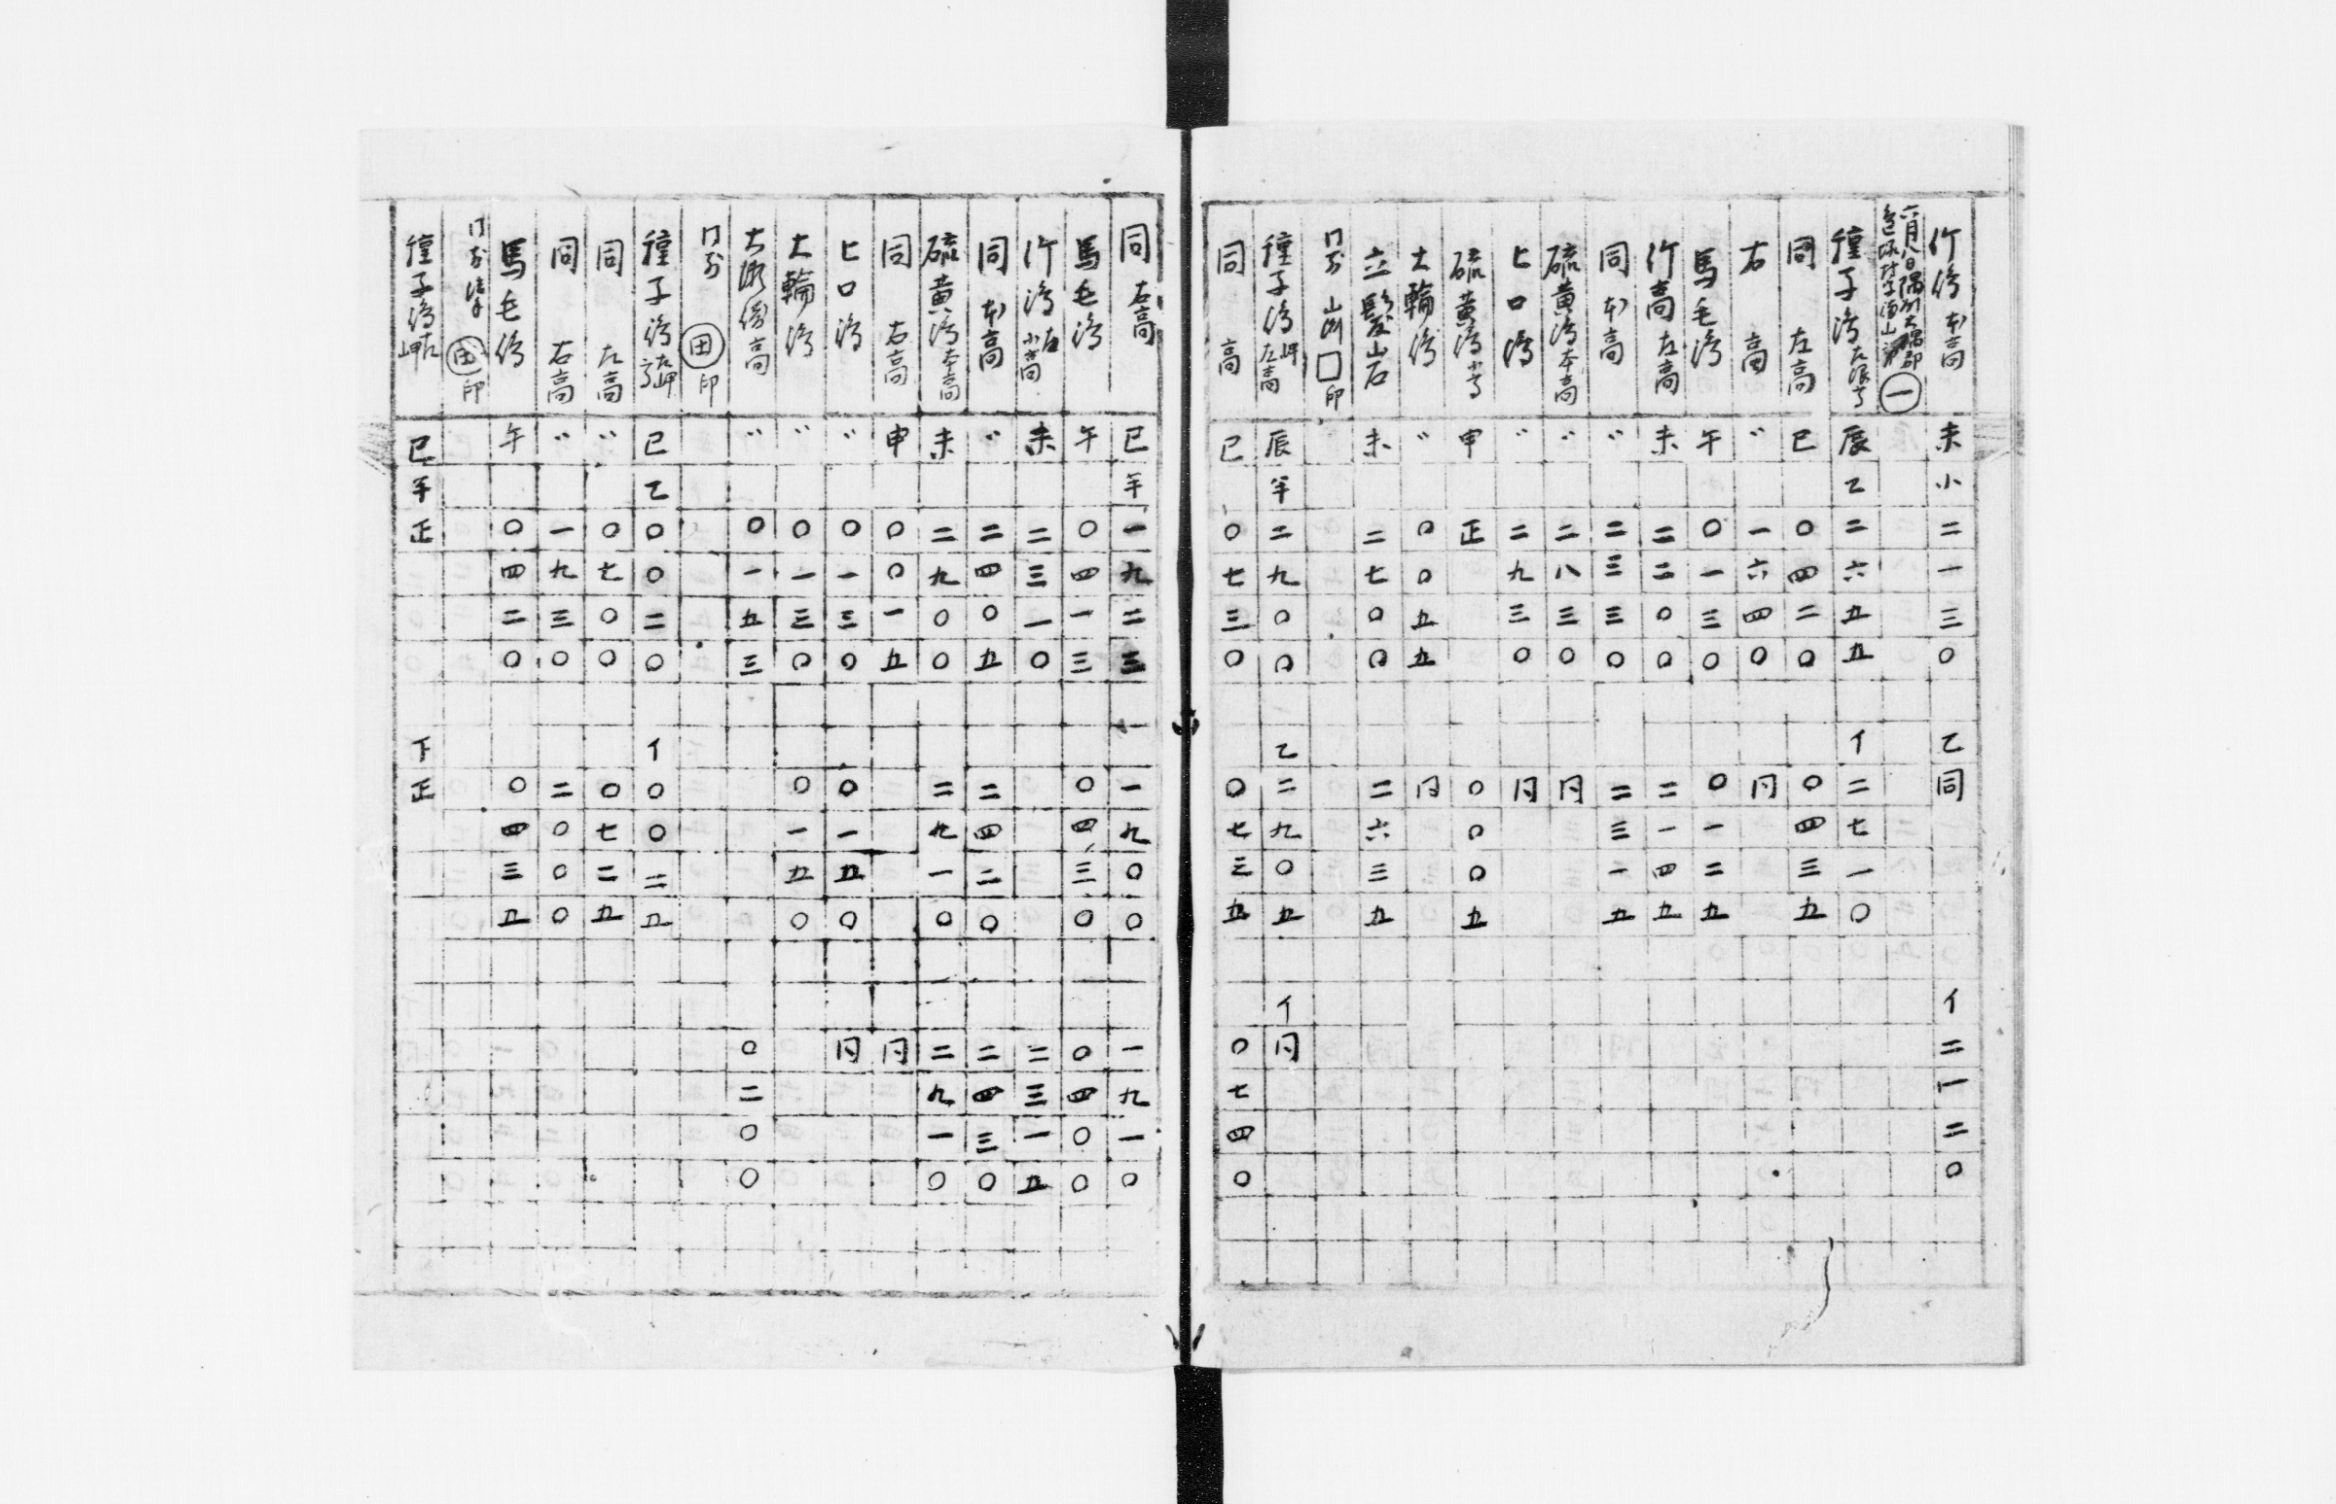 竹嶋 本高 未 小 二一三〇 乙 同 イ 二一二〇
六月八日隅州大隅郡
種子嶋 辰 乙 二六五五 イ 二七一〇
同 左高 巳 〇四二〇 〇四三五
右 高 〃 一六四〇 同
馬毛嶋 午 〇一三〇 〇一二五
竹嶋 左高 未 二二〇〇 二一四五
同 本高 〃 二三三〇 二三一五
硫黄嶋 本高 〃 二八三〇 同
七口嶋 〃 二九三〇 同
硫黄嶋 申 正 〇〇〇五
大輪嶋 〃 〇〇五五 同
立髪山 右 未 二七〇〇 二六三五
同所 印
種子嶋 岬左高 辰 半 二九〇〇 乙 二九〇五 イ 同
同 高 巳 〇七三〇 〇七三五 〇七四〇
同 右高 巳 半 一九二三 一九〇〇 一九一〇
馬毛嶋 午 〇四一三 〇四三〇 〇四〇〇
竹嶋 未 二三一〇 二三一五
同 本高 〃 二四〇五 二四二〇 二四三〇
硫黄嶋 本高 未 二九〇〇 二九一〇 二九一〇
同 右高 申 〇〇一五 同
七口嶋 〃 〇一三〇 〇一五〇 同
大輪嶋 〃 〇一三〇 〇一五〇
高 〃 〇一五三 〇二〇〇
同所 田 印
種子嶋 巳 乙 〇〇二〇 イ 〇〇二五
同 左高 〃 〇七〇〇 〇七二五
同 右高 〃 一九三〇 二〇〇〇
馬毛嶋 午 〇四二〇 〇四三五
同所 田 印
種子嶋 左岬 巳 半 正 下 正